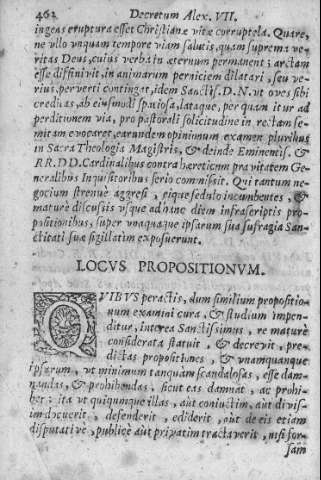 462 Decretum Alex. VII.
ingens eruptura esset Christianæ vitæ corruptela. Quare,
ne vllo vnquam tempore viam salutis, quam suprema ve-
ritas Deus, cuius verba in æternum permanent; arctam
esse diffinivit, in animarum perniciem dilatari, seu ve-
rius, perverti contingat, idem Sanctiss. D. N. ut oves sibi
creditas, ab eiusmodi spatiosa, lataque, per quam itur ad
perditionem via, pro pastorali solicitudine in rectam se-
mitam evocaret, earundem opinionum examen pluribus
in Sacra Theologia Magistris, & deinde Eminentis. &
RR. DD. Cardinalibus contra hæreticam pravitatem Ge-
neralibus Inquisitoribus serio commisit. Qui tantum ne-
gocium strenuè aggresi, eique sedulo incumbentes, &
maturè discussis usque ad hanc diem infrascriptis pro-
positionibus, super unaquaque ipsarum sua sufragia San-
ctitati suæ sigillatim exposuerunt.
LOCVS PROPOSITIONVM.
QVIBVS peractis, dum similium propositio-
num examini cura, & studium impen-
ditur, interea Sanctissimus, re maturè
considerata statuit, & decrevit, præ-
dictas propositiones, & vnamquamque
ipsarum, ut minimum tanquam scandalosas, esse dam-
nandas, & prohibendas, sicut eas damnat, ac prohi-
bet: ita ut quicumque illas, aut coniuctim, aut divis-
im docuerit, defenderit, ediderit, aut de eis etiam
disputativè, publicè aùt privatim tractaverit, nisi for-
sam